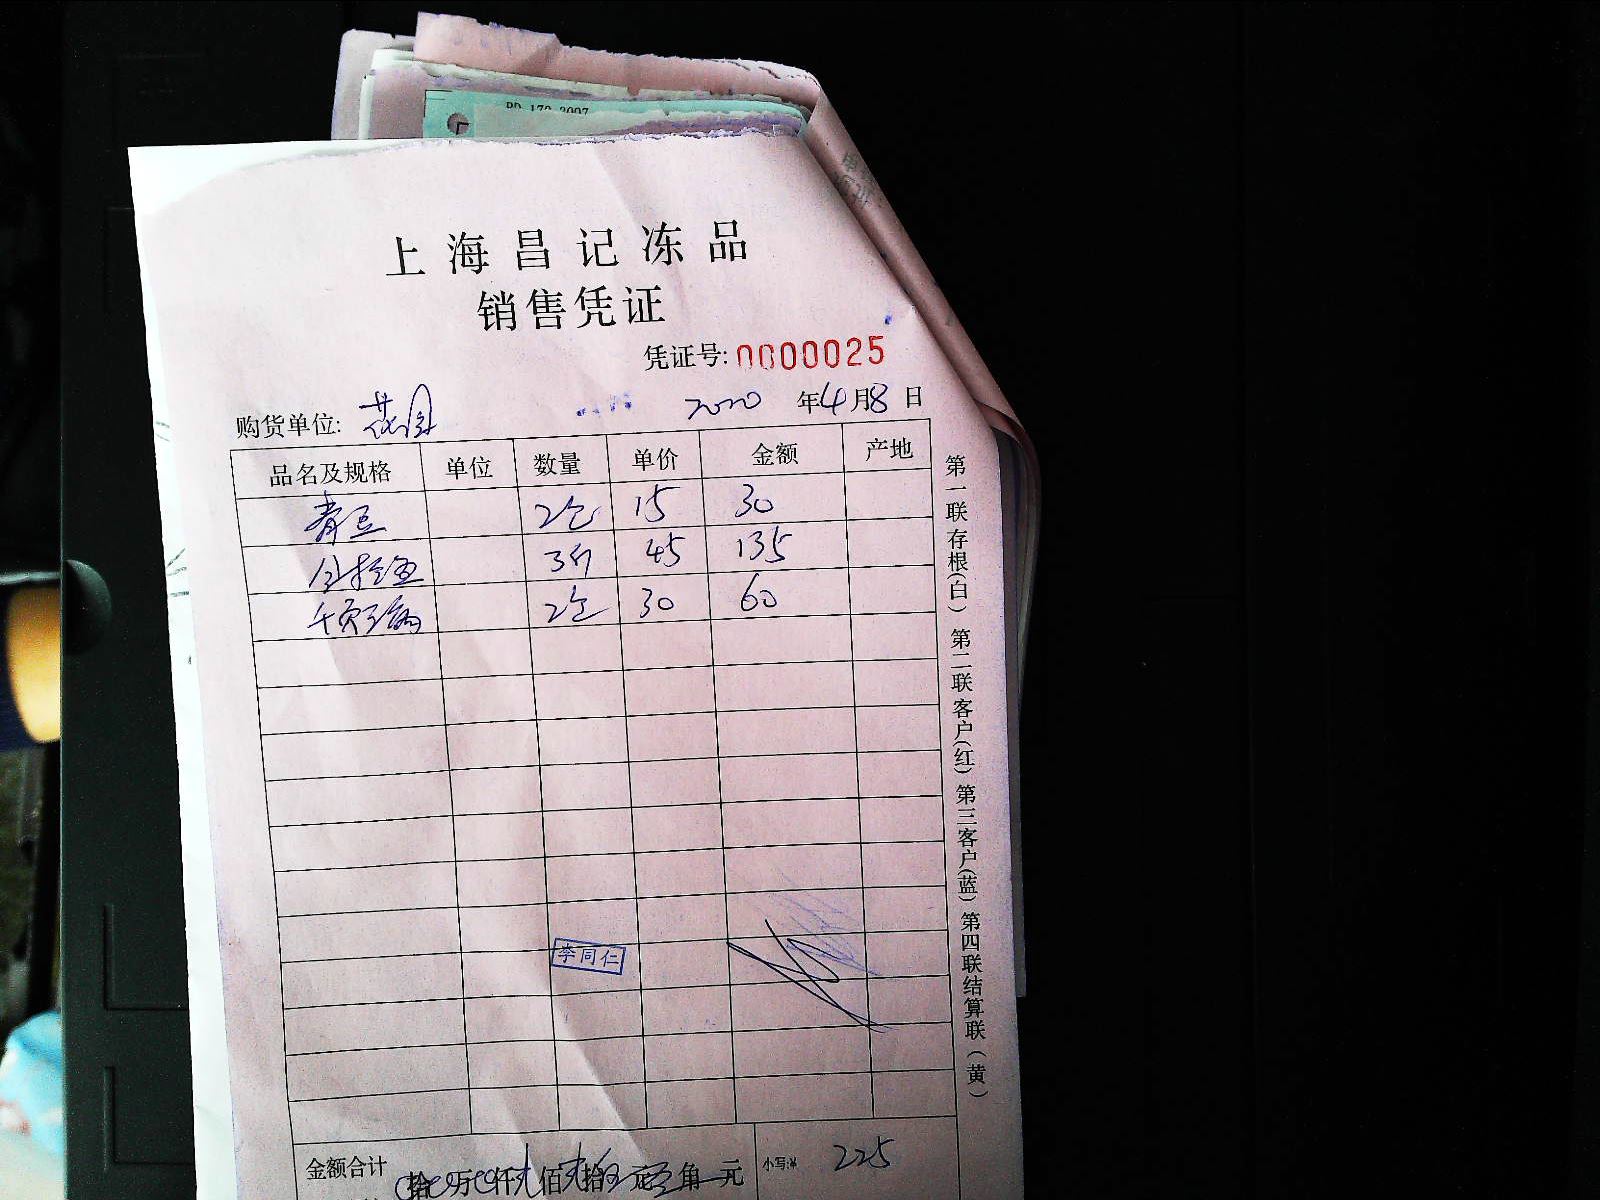 PD-172-2007
上海昌记冻品
销售凭证
凭证号: 0000025
购货单位: 花园 2020 年 4 月 8 日
品名及规格 单位 数量 单价 金额 产地
青豆 2包 15 30
3斤 45 135
千页豆腐 2包 30 60
李同仁
金额合计 拾 万 仟 佰 拾 元 角 元 小写:¥ 225
第一联存根(白) 第二联客户(红) 第三客户(蓝) 第四联结算联(黄)